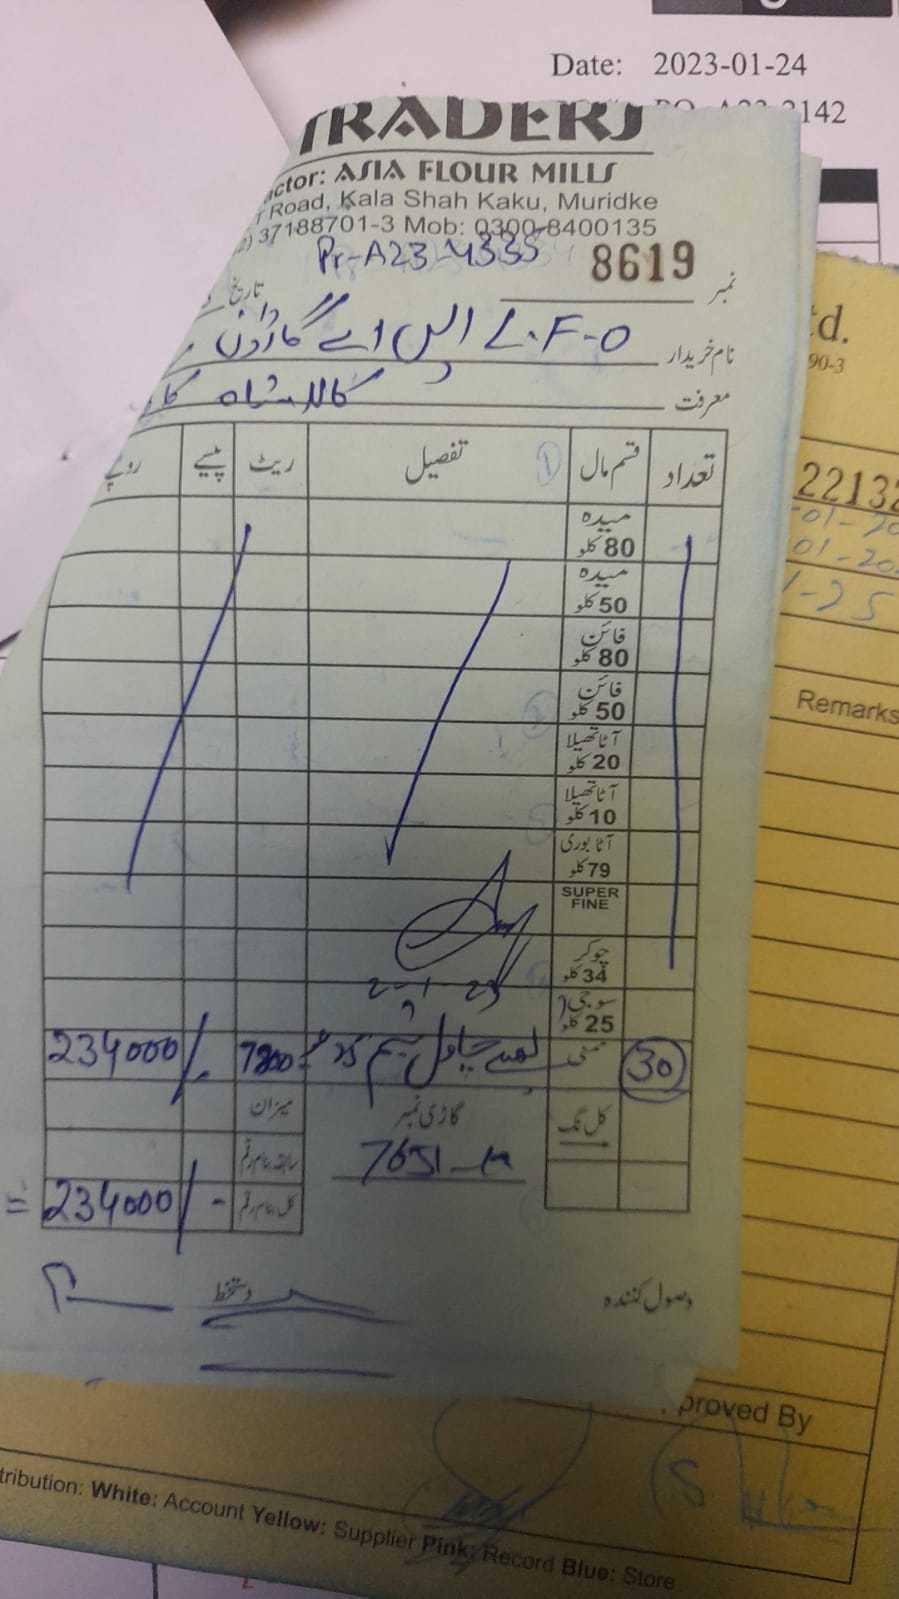 Date: 2023-01-24
142
TRADERS
ctor: ASIA FLOUR MILLS
Road, Kala Shah Kaku, Muridke
37188701-3 Mob: 0300-8400135
Pr-A23-4335
8619 نمبر
تاریخ
نام خریدار L.F.O ایس اے گارڈن
معرفت کالا شاہ کا
تعداد قسم مال تفصیل ریٹ پیسے روپے
میدہ
80 کلو
میدہ
50 کلو
فائن
80 کلو
فائن
50 کلو
آٹا تھیلا
20 کلو
آٹا تھیلا
10 کلو
آٹا بوری
79 کلو
SUPER
FINE
چوکر
34 کلو
2-1-23
سوجی
25 کلو
30 چاول 7800 234000/-
کل نگ گاڑی نمبر میزان
7651 سابقہ بنام رقم
کل بنام رقم 234000/- =
وصول کنندہ دستخط
td.
90-3
22132
01-20
01-20
1-25
Remarks
proved By
tribution: White: Account Yellow: Supplier Pink: Record Blue: Store